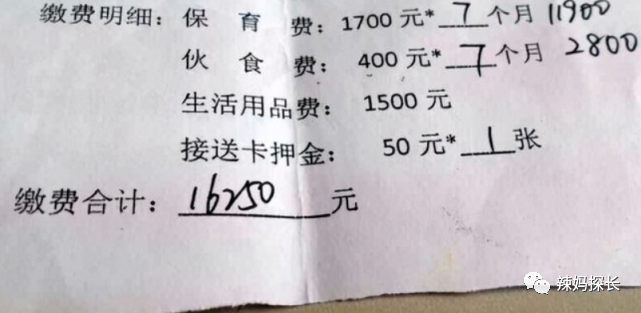 缴费明细：保 育 费：1700 元*7个月 11900
伙 食 费：400 元*7个月 2800
生活用品费：1500 元
接送卡押金：50 元*1张
缴费合计：16250元
辣妈探长